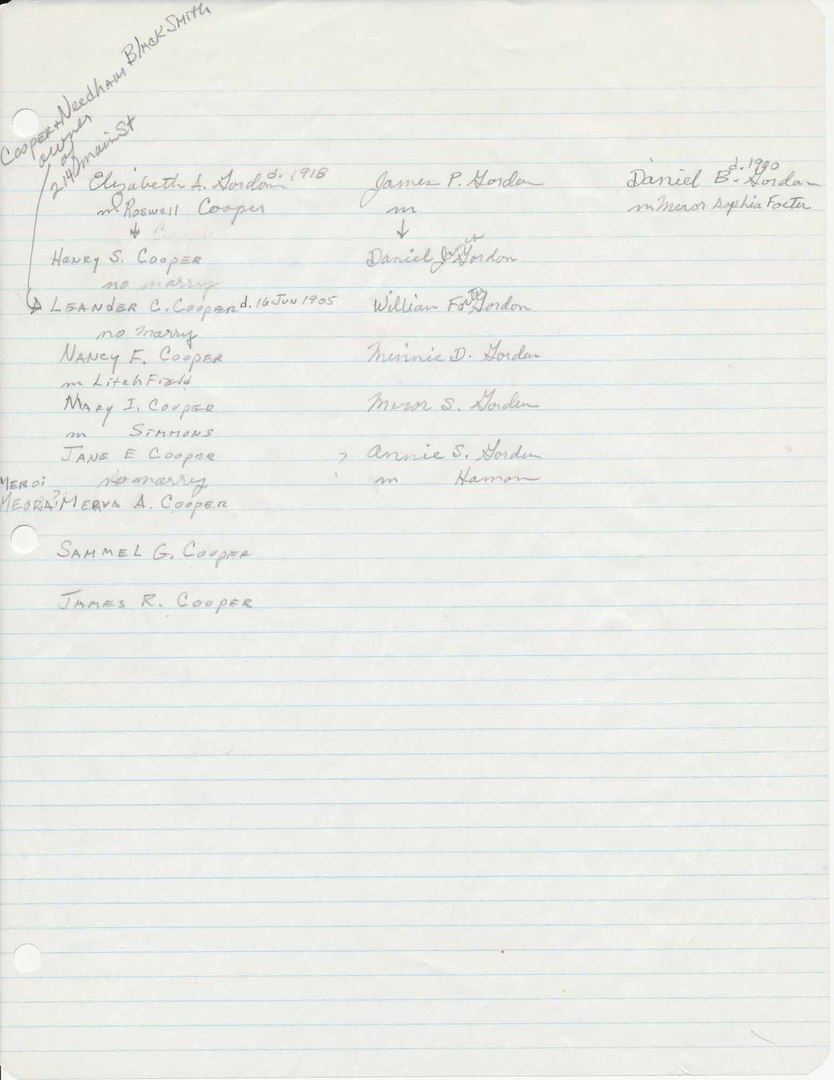 Cooper + Needham BlackSmith
owner
of
214 Main St
Elizabeth A. Gordon d. 1918
m Roswell Cooper
Henry S. Cooper
no marry
Leander C. Cooper d. 16 Jun 1905
no marry
Nancy E. Cooper
m Litchfield
Mary I. Cooper
m Simmons
Jane E Cooper
no marry
Meroi
Meora? Merva A. Cooper
Sammel G. Cooper
James R. Cooper
James P. Gordon
m
Daniel Gordon
William Gordon
Minnie D. Gordon
S. Gordon
? Annie S. Gordon
m Hamon
d. 1900
Daniel B. Gordon
m Meror Sophia Foster